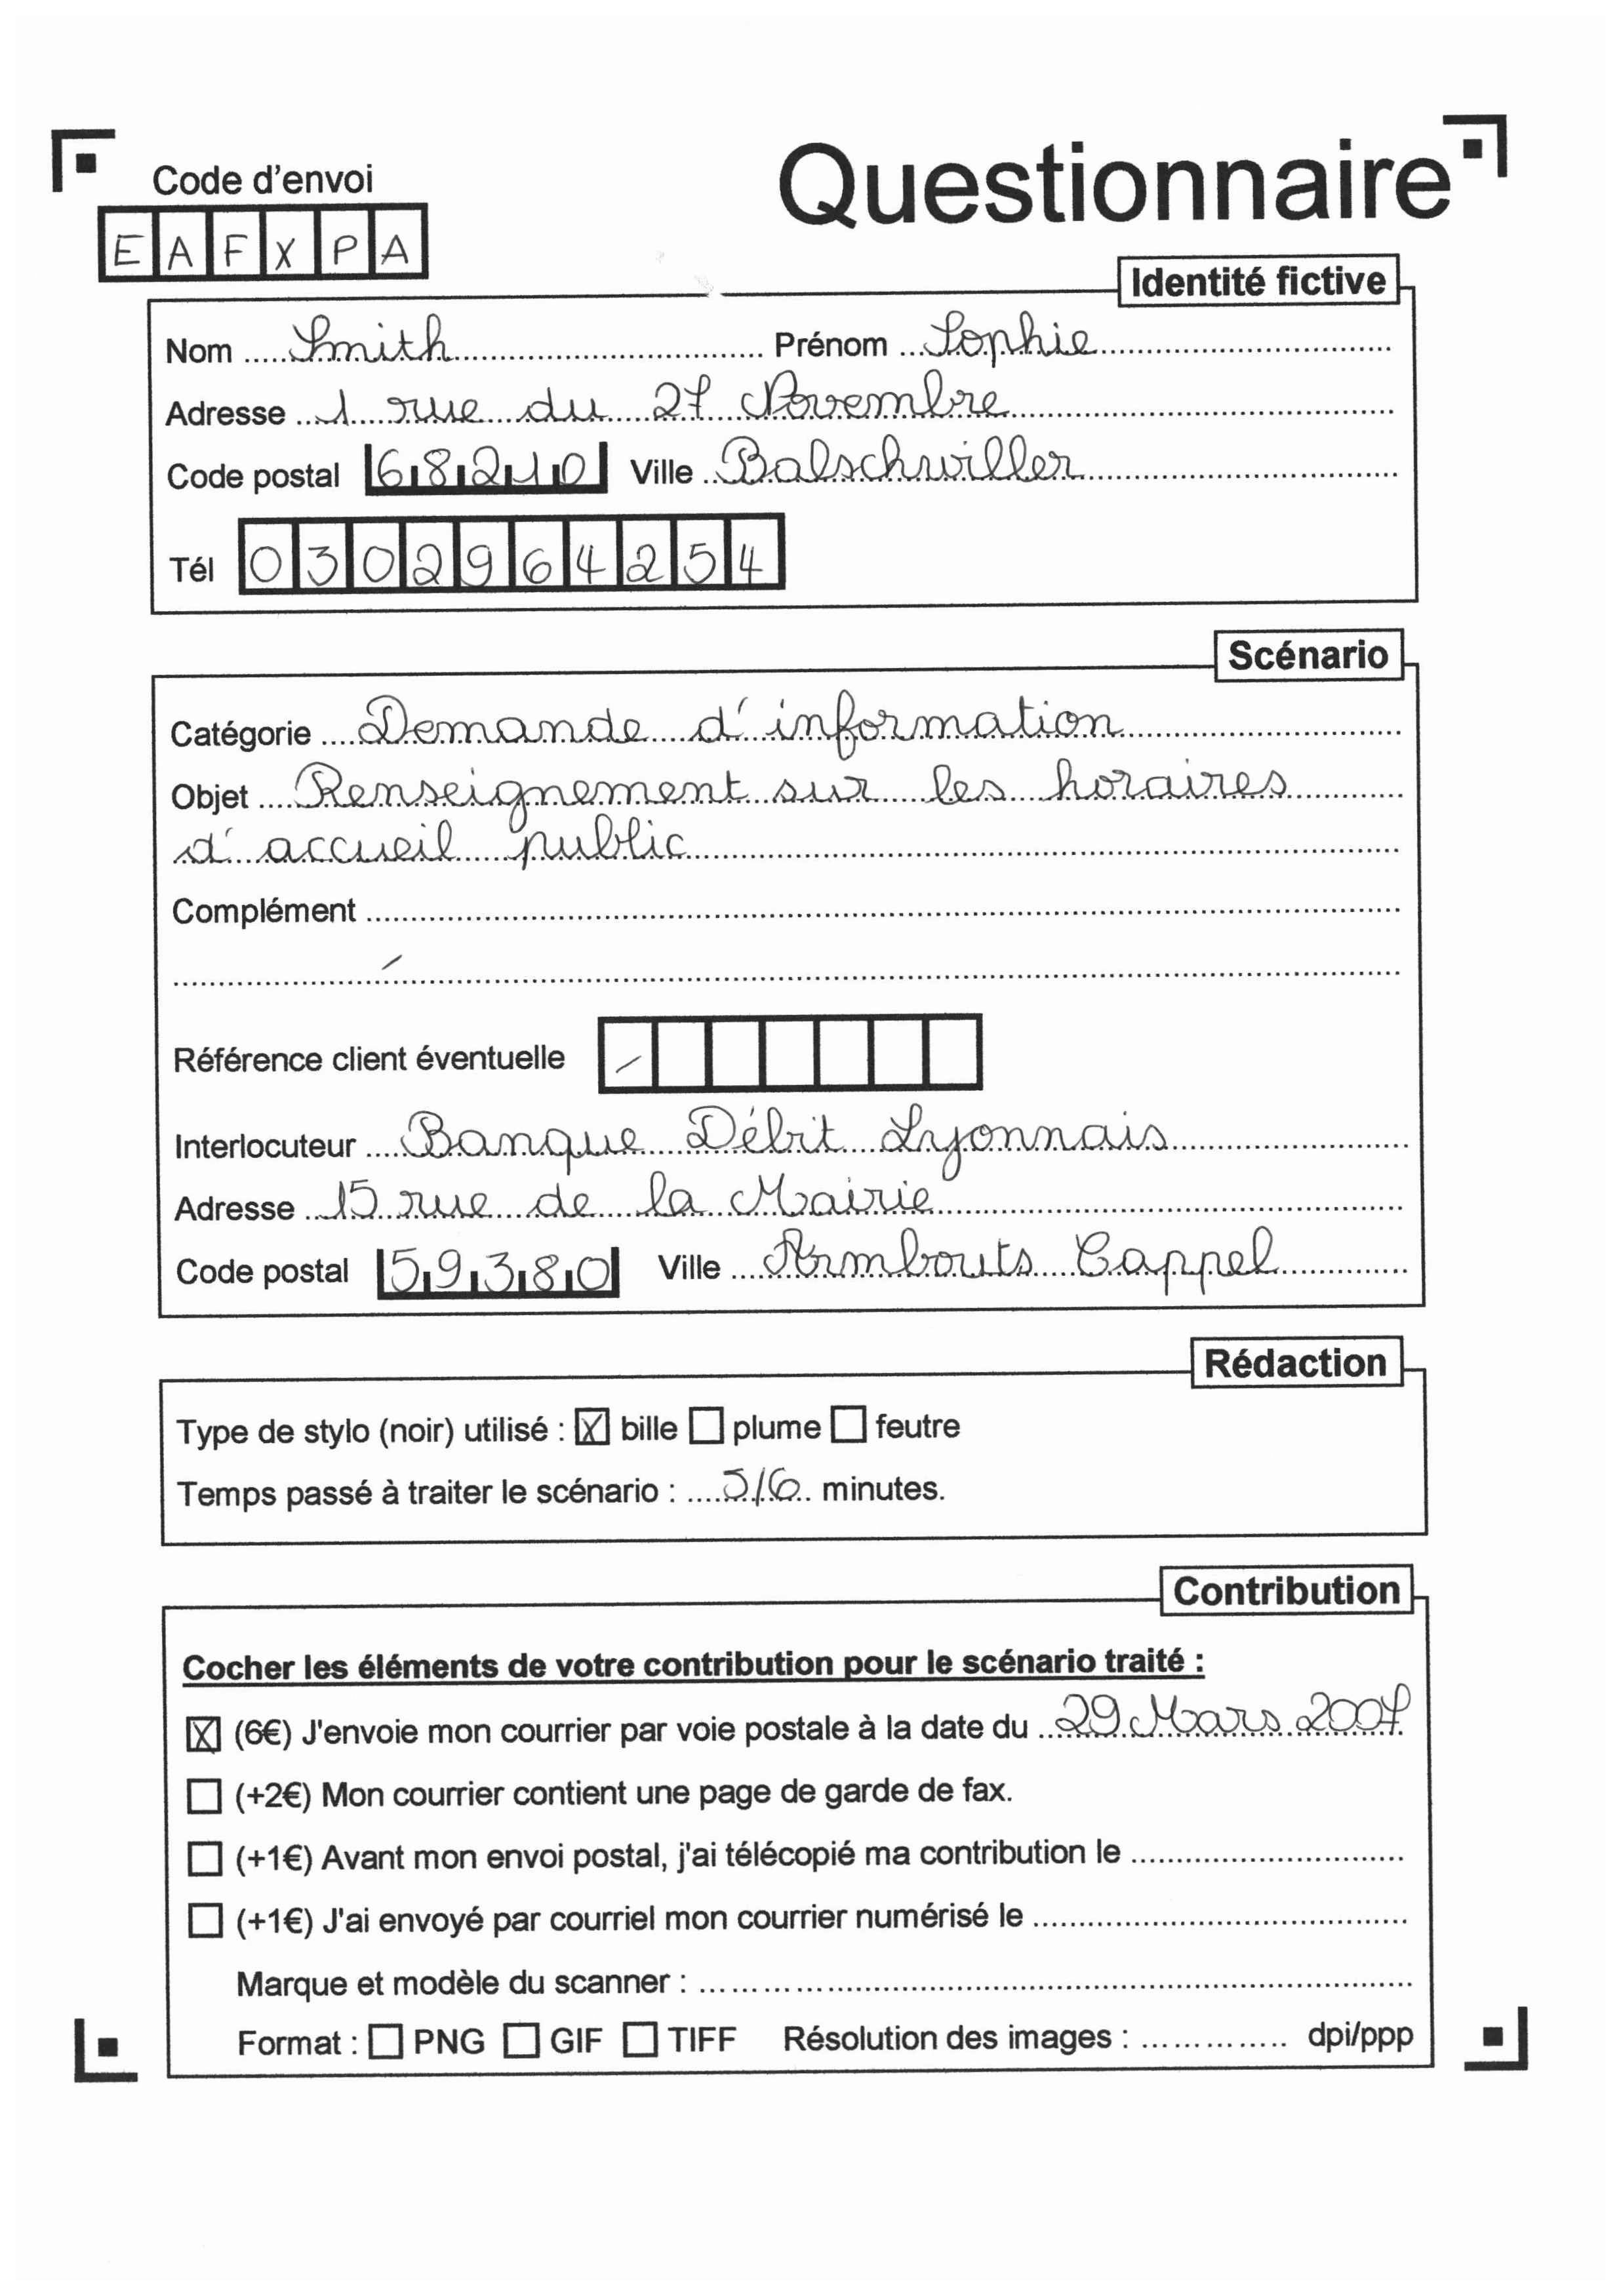 Code d'envoi
Questionnaire
EAFXPA
Identité fictive
Nom Smith Prénom Sophie
Adresse 1 rue du 27 Novembre
Code postal 68210 Ville Balschwiller
Tél 0302964254
Scénario
Catégorie Demande d'information
Objet Renseignement sur les horaires
d'accueil public
Complément
/
Référence client éventuelle /
Interlocuteur Banque Débit Lyonnais
Adresse 15 rue de la Mairie
Code postal 59380 Ville Armbouts Cappel
Rédaction
Type de stylo (noir) utilisé : ☒ bille ☐ plume ☐ feutre
Temps passé à traiter le scénario : 5/6 minutes.
Contribution
Cocher les éléments de votre contribution pour le scénario traité :
☒ (6€) J'envoie mon courrier par voie postale à la date du 29 Mars 2007
☐ (+2€) Mon courrier contient une page de garde de fax.
☐ (+1€) Avant mon envoi postal, j'ai télécopié ma contribution le
☐ (+1€) J'ai envoyé par courriel mon courrier numérisé le
Marque et modèle du scanner :
Format : ☐ PNG ☐ GIF ☐ TIFF Résolution des images : dpi/ppp